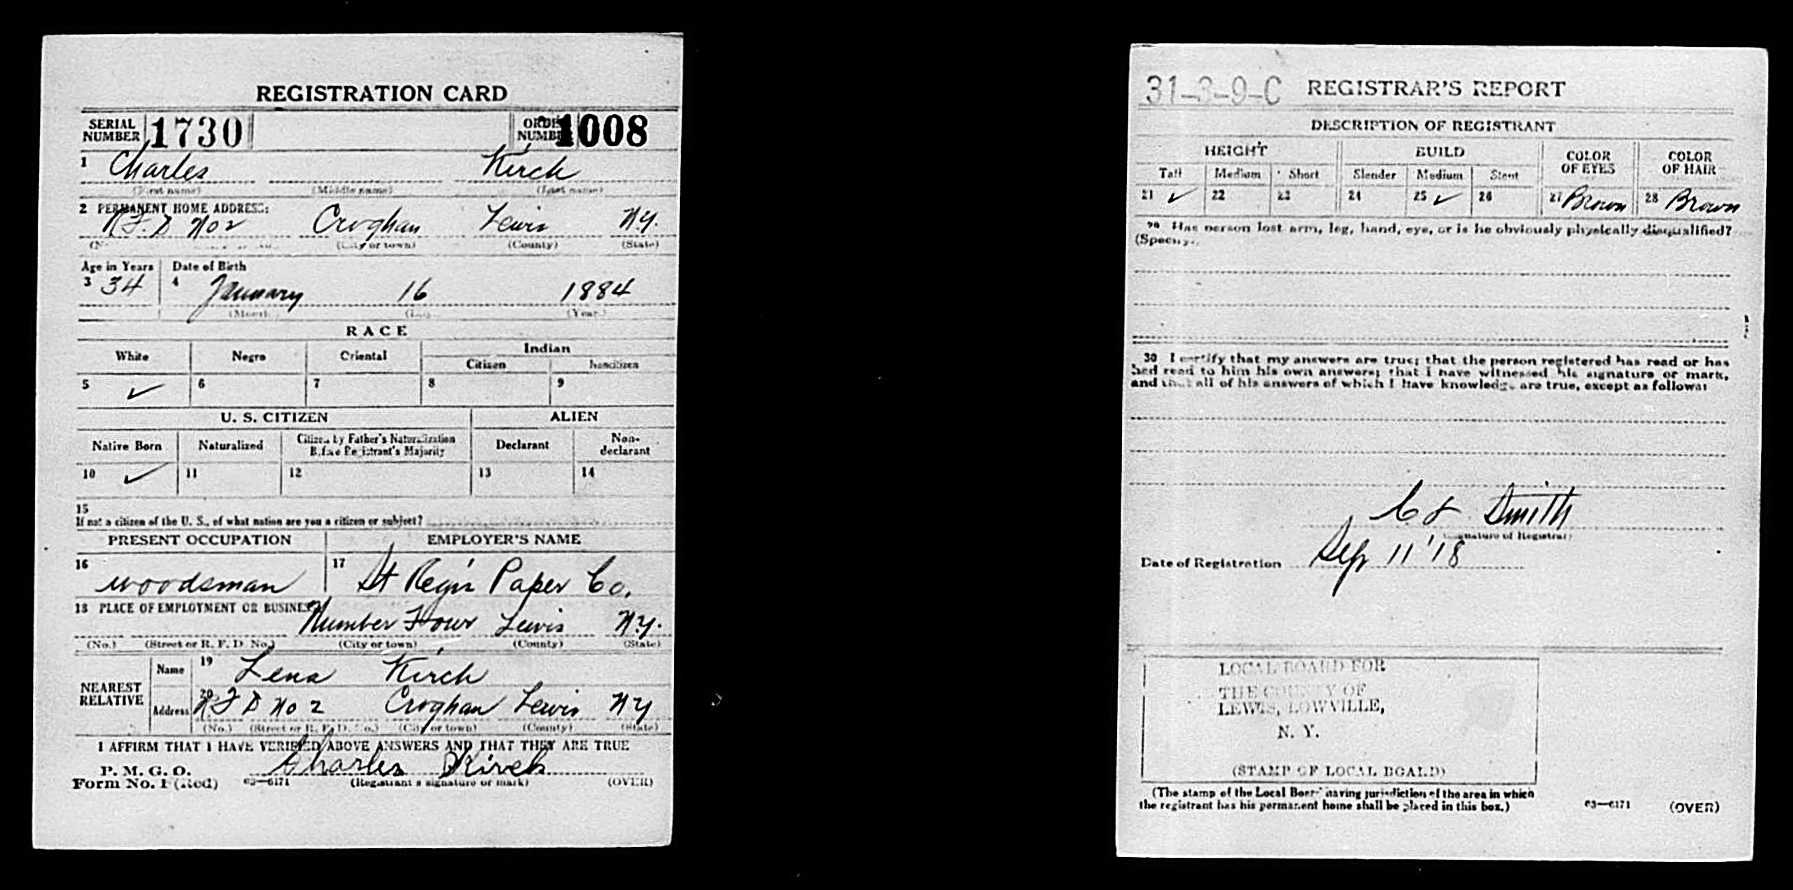 REGISTRATION CARD
SERIAL NUMBER 1730 ORDER NUMBER 1008
1 Charles Kirch
(First name) (Middle name) (Last name)
2 PERMANENT HOME ADDRESS:
R F D No 2 Croghan Lewis N.Y.
(City or town) (County) (State)
Age in Years Date of Birth
3 34 4 January 16 1884
(Month) (Day) (Year)
RACE
White Negro Oriental Indian
Citizen Noncitizen
5 ✓ 6 7 8 9
U. S. CITIZEN ALIEN
Native Born Naturalized Citizen by Father's Naturalization Before Registrant's Majority Declarant Non-declarant
10 ✓ 11 12 13 14
15
If not a citizen of the U. S., of what nation are you a citizen or subject?
PRESENT OCCUPATION EMPLOYER'S NAME
16 woodsman 17 St Regis Paper Co.
18 PLACE OF EMPLOYMENT OR BUSINESS:
Number Four Lewis N.Y.
(No.) (Street or R. F. D. No.) (City or town) (County) (State)
NEAREST RELATIVE
Name 19 Lena Kirch
Address 20 R F D No 2 Croghan Lewis N Y
(No.) (Street or R. F. D. No.) (City or town) (County) (State)
I AFFIRM THAT I HAVE VERIFIED ABOVE ANSWERS AND THAT THEY ARE TRUE
P. M. G. O.
Form No. 1 (Red) 03—6171 Charles Kirch
(Registrant's signature or mark) (OVER)
31-3-9-C REGISTRAR'S REPORT
DESCRIPTION OF REGISTRANT
HEIGHT BUILD COLOR OF EYES COLOR OF HAIR
Tall Medium Short Slender Medium Stout
21 ✓ 22 23 24 25 ✓ 26 27 Brown 28 Brown
29 Has person lost arm, leg, hand, eye, or is he obviously physically disqualified?
(Specify.)
30 I certify that my answers are true; that the person registered has read or has
had read to him his own answers; that I have witnessed his signature or mark,
and that all of his answers of which I have knowledge are true, except as follows:
Smith
(Signature of Registrar)
Date of Registration Sep 11 '18
LOCAL BOARD FOR
THE COUNTY OF
LEWIS, LOWVILLE,
N. Y.
(STAMP OF LOCAL BOARD)
(The stamp of the Local Board having jurisdiction of the area in which
the registrant has his permanent home shall be placed in this box.)
03—6171 (OVER)